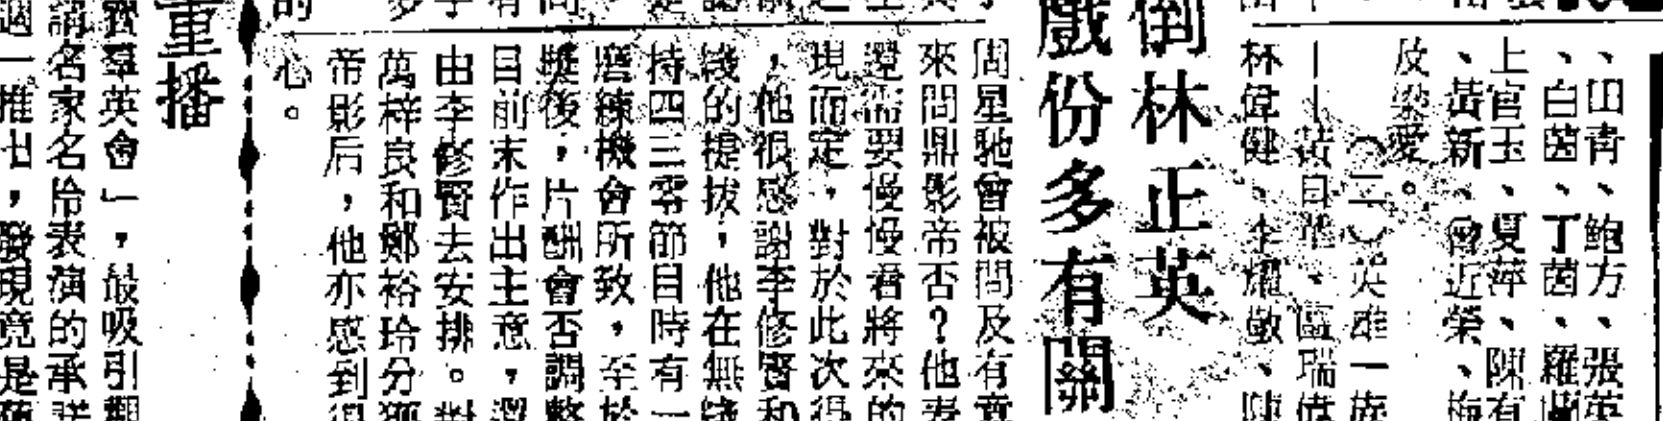 、田青、鮑方、張英
、白茵、丁茵、羅蘭
上官玉、夏萍、陳有
、黃新、曾近榮、梅
及梁愛。
(二)英雄一族
——黃日華、區瑞偉
林偉健、李耀敬、陳
倒林正英
戲份多有關
周星馳曾被問及有意
來問鼎影帝否?他表
還需要慢慢看將來的
現而定,對於此次得
,他很感謝李修賢和
綫的提拔,他在無綫
持四三零節目時有一
磨練機會所致,至於
獎後,片酬會否調整
目前未作出主意,還
由李修賢去安排。對
萬梓良和鄭裕玲分獲
帝影后,他亦感到很
心。
重播
羣英會」,最吸引觀
名家名伶表演的承
週一推出,發現竟是